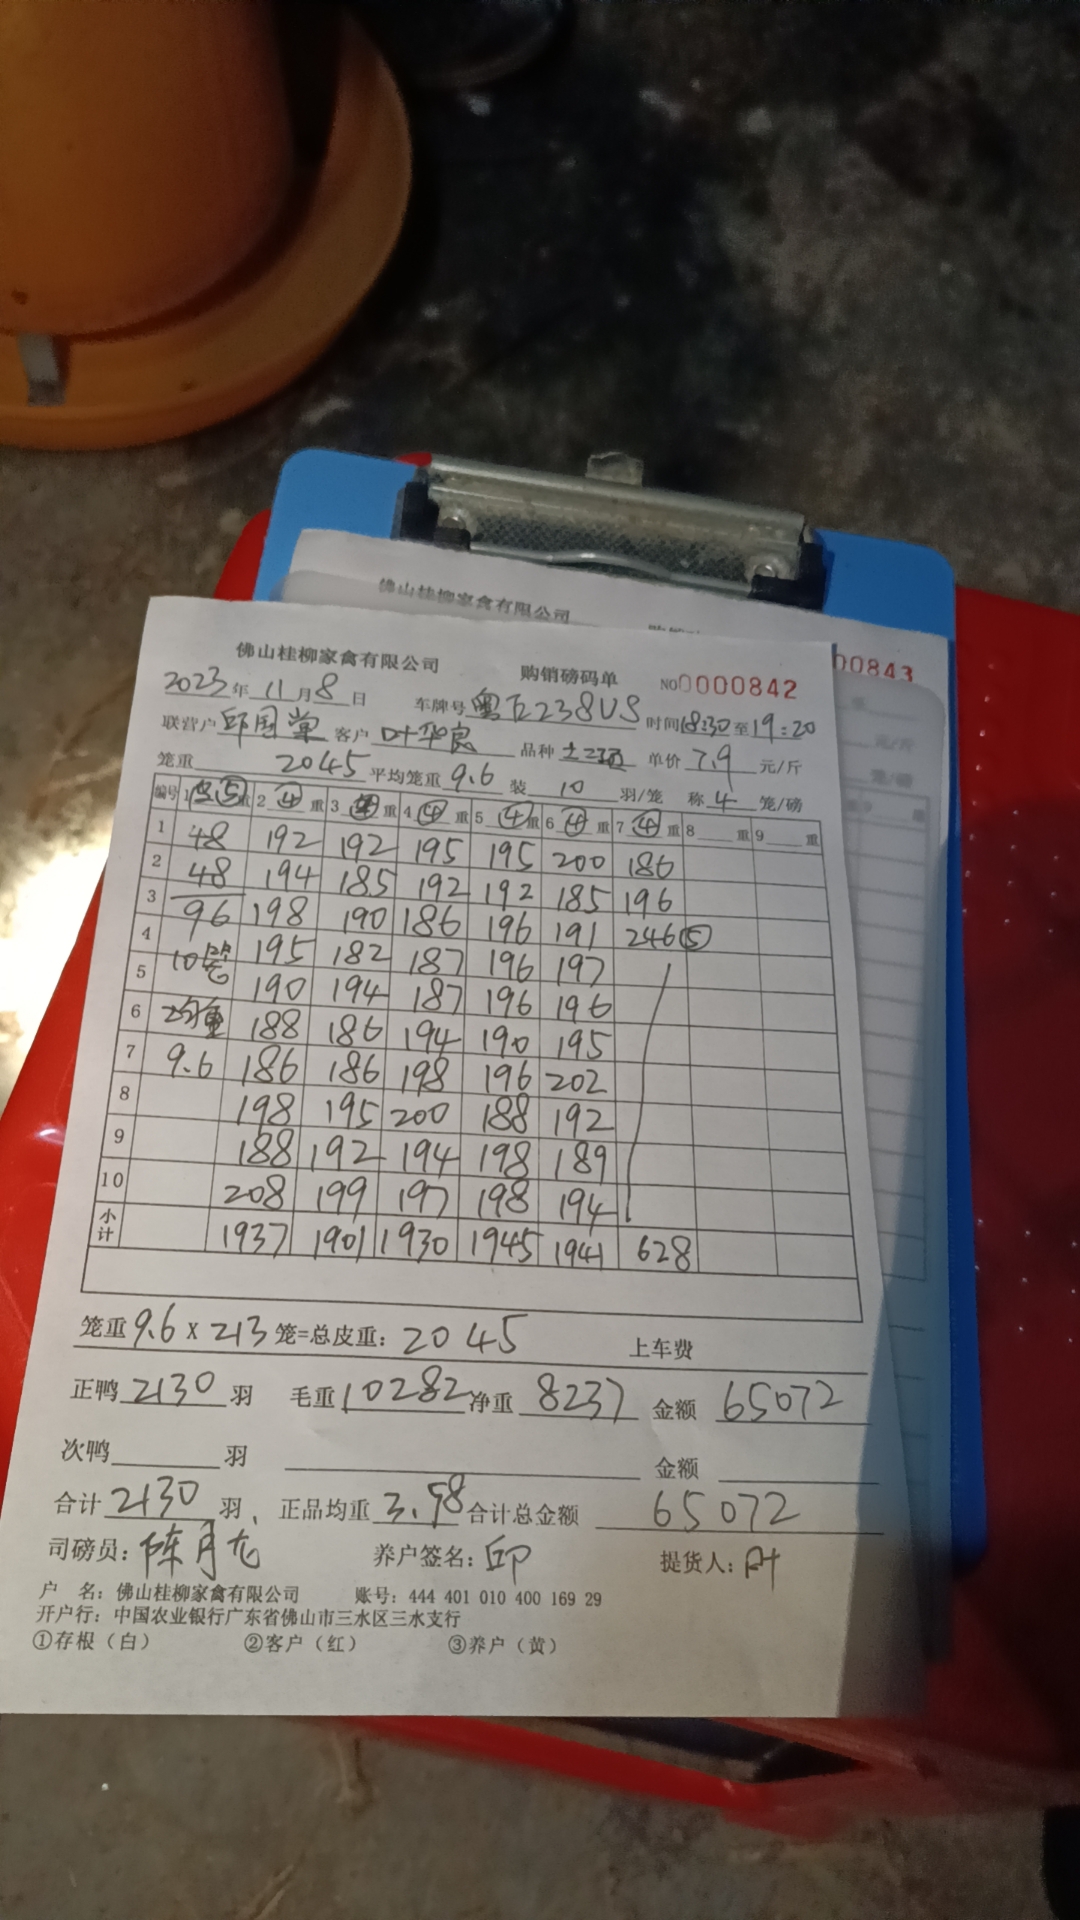 佛山桂柳家禽有限公司
00843
佛山桂柳家禽有限公司 购销磅码单 NO0000842
2023年11月8日 车牌号粤E238US 时间18:30至19:20
联营户邱国棠 客户叶华良 品种土二项 单价7.9元/斤
笼重2045平均笼重9.6装10羽/笼 称4笼/磅
编号 1 ⑤重 2 ④重 3 ④重 4 ④重 5 ④重 6 ④重 7 ④重 8 重 9 重
1 48 192 192 195 195 200 186
2 48 194 185 192 192 185 196
3 96 198 190 186 196 191 246⑤
4 10笼 195 182 187 196 197
5 190 194 187 196 196
6 均重 188 186 194 190 195
7 9.6 186 186 198 196 202
8 198 195 200 188 192
9 188 192 194 198 189
10 208 199 197 198 194
小计 1937 1901 1930 1945 1941 628
笼重9.6x213笼=总皮重:2045 上车费
正鸭2130羽 毛重10282净重8237 金额65072
次鸭 羽 金额
合计2130羽、正品均重3.98合计总金额65072
司磅员:陈月龙 养户签名:邱 提货人:叶
户 名:佛山桂柳家禽有限公司 账号:444 401 010 400 169 29
开户行:中国农业银行广东省佛山市三水区三水支行
①存根(白) ②客户(红) ③养户(黄)